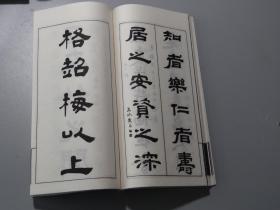 知者樂仁者壽
居之安資之深
格超梅以上